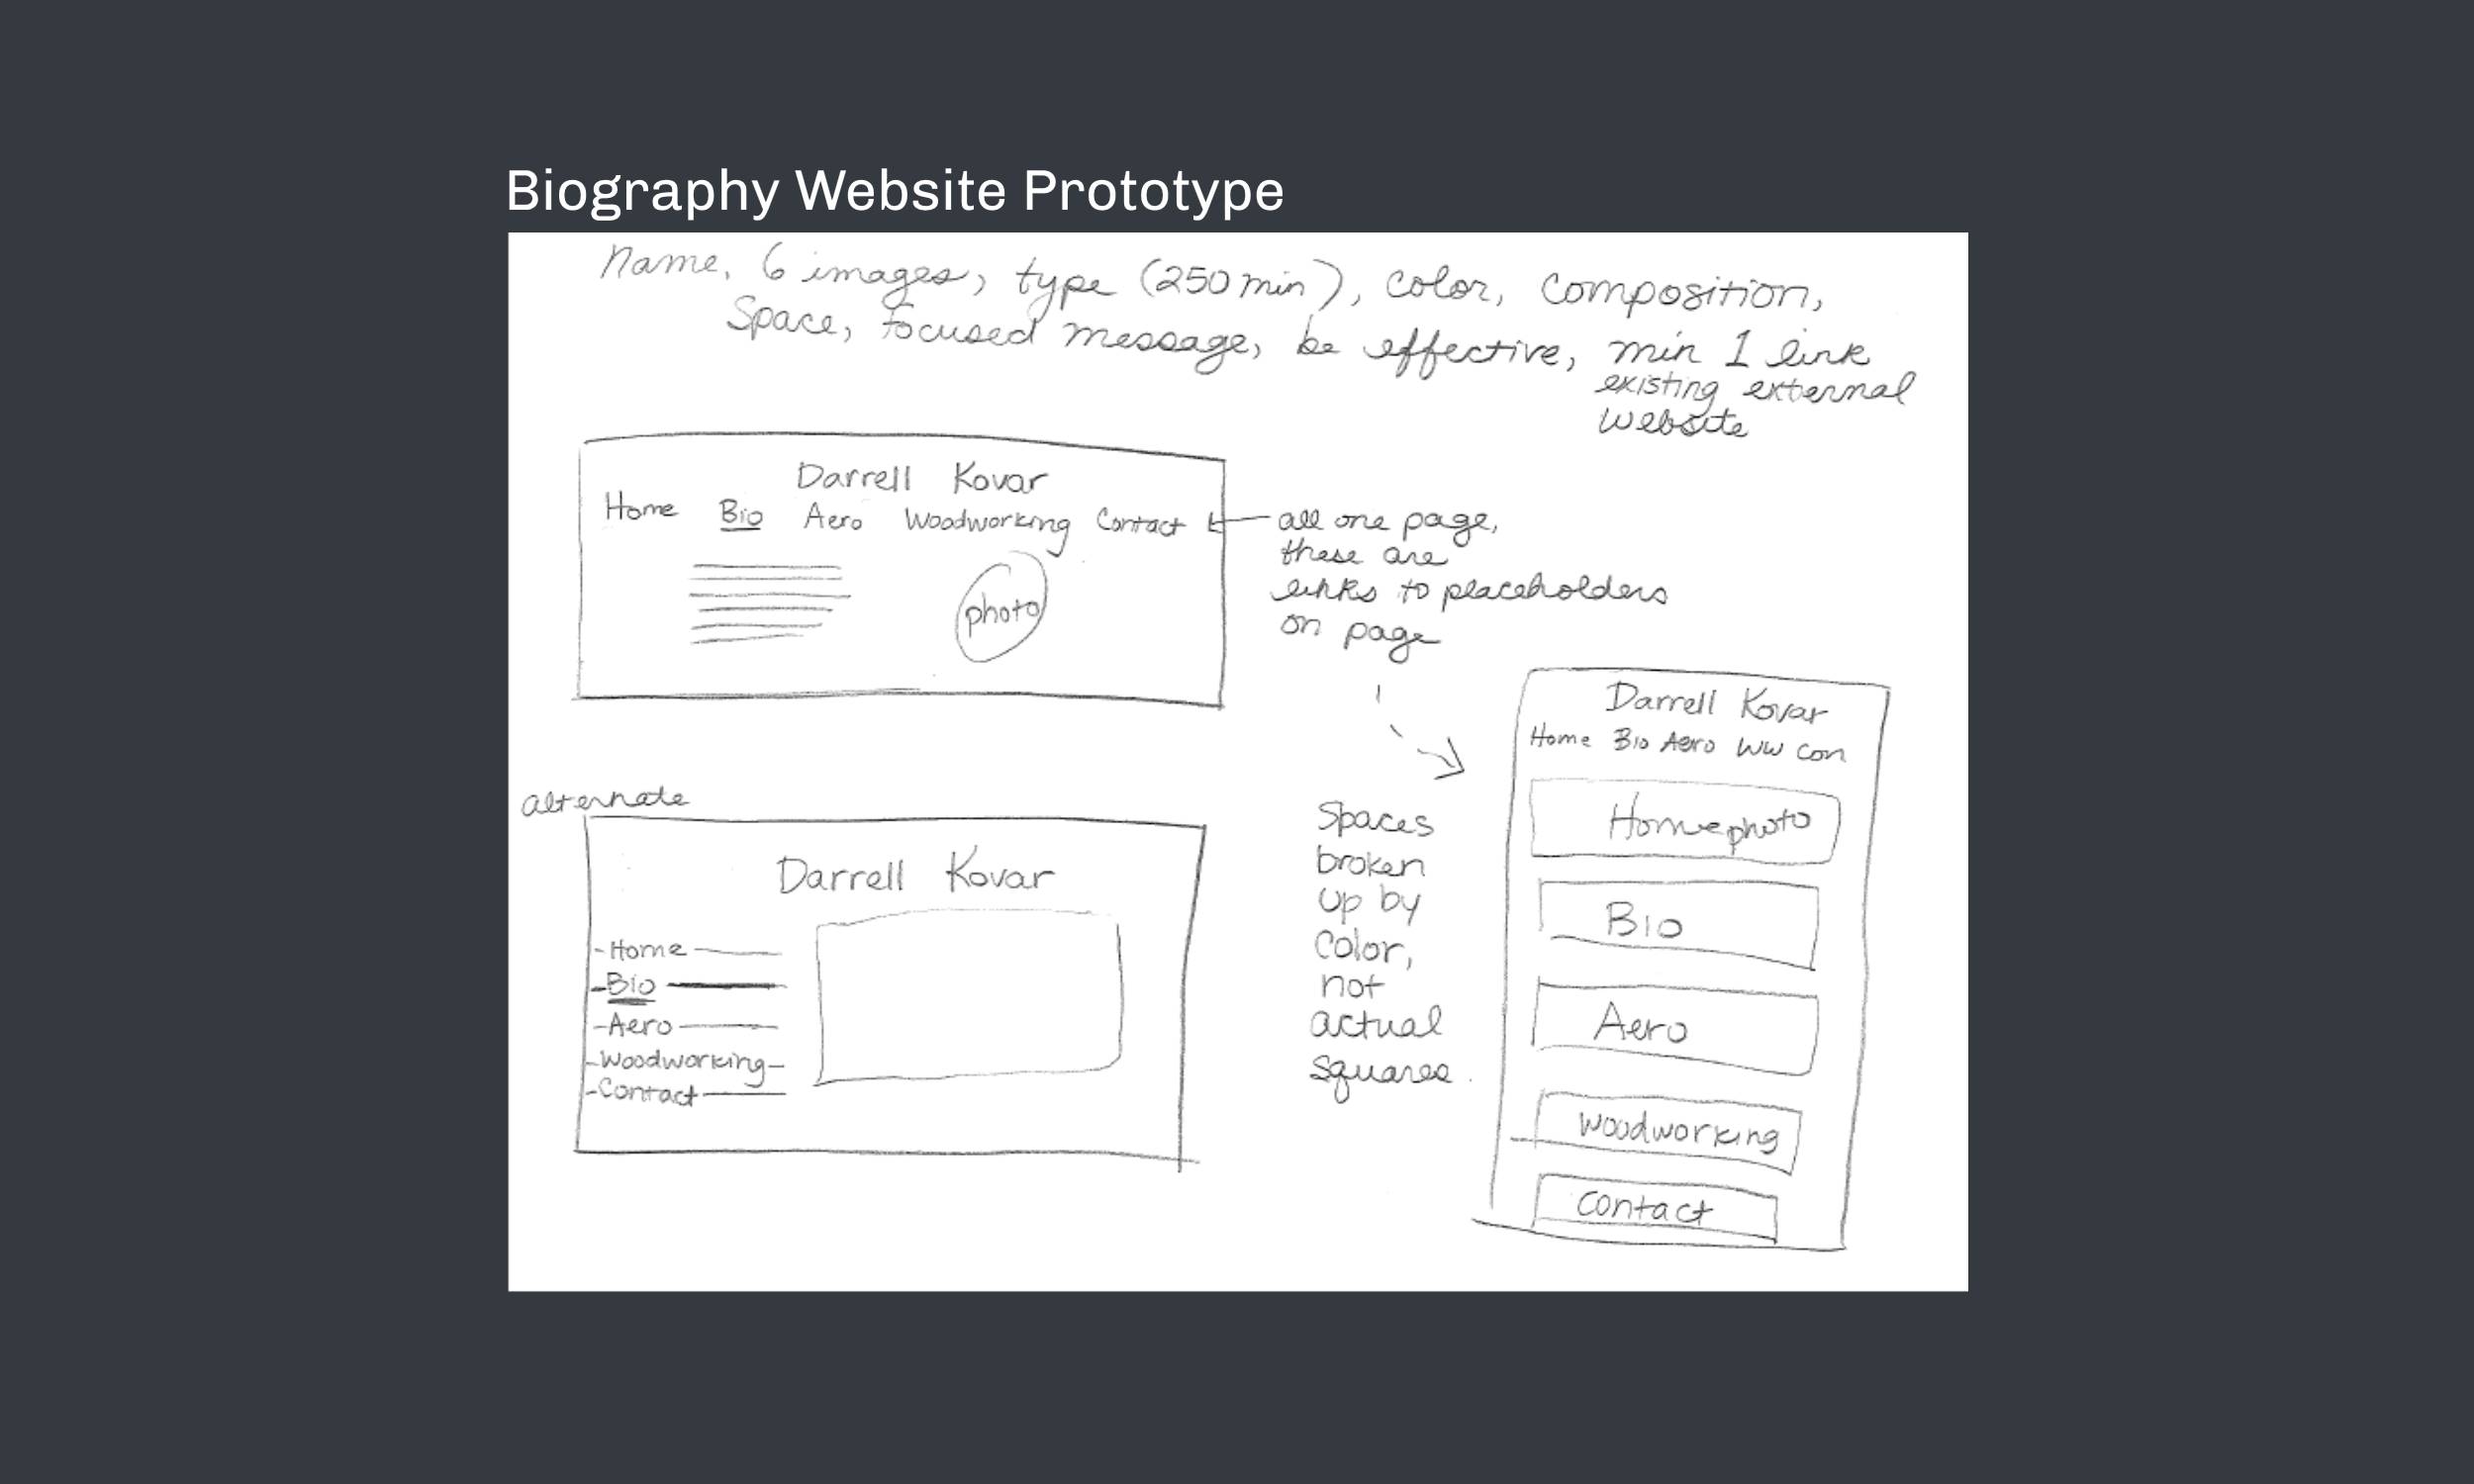 Biography Website Prototype
Name, 6 images, type (250 min), color, composition,
Space, focused message, be effective, min 1 link
existing external
website
Darrell Kovar
Home Bio Aero Woodworking Contact
photo
all one page,
these are
links to placeholders
on page
alternate
Darrell Kovar
-Home
-Bio
-Aero
-Woodworking-
-Contact
Spaces
broken
up by
color,
not
actual
squares.
Darrell Kovar
Home Bio Aero WW Con
Home photo
Bio
Aero
Woodworking
Contact